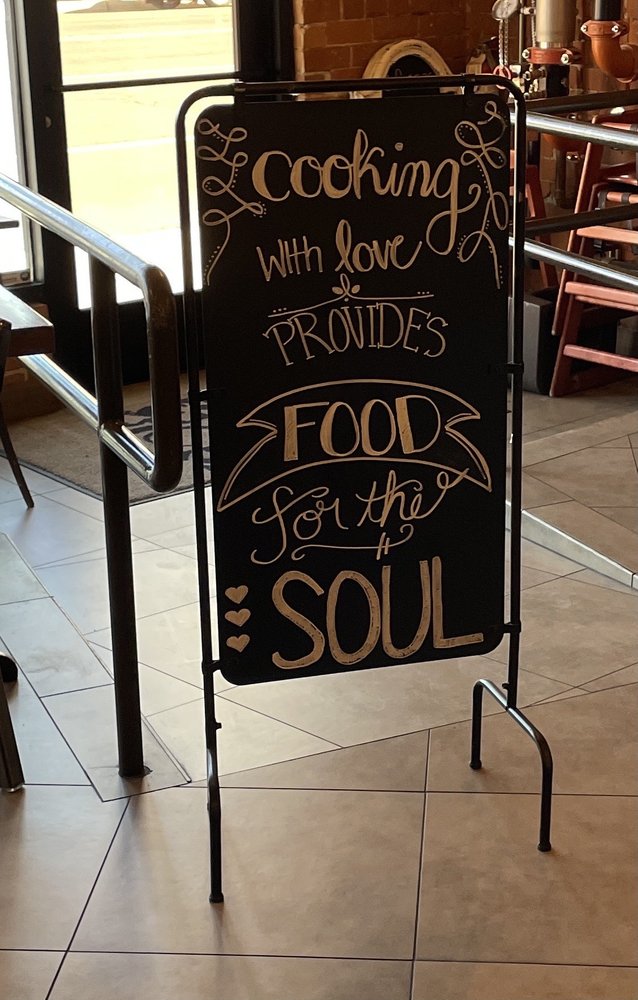 cooking
with love
PROVIDES
FOOD
for the
SOUL